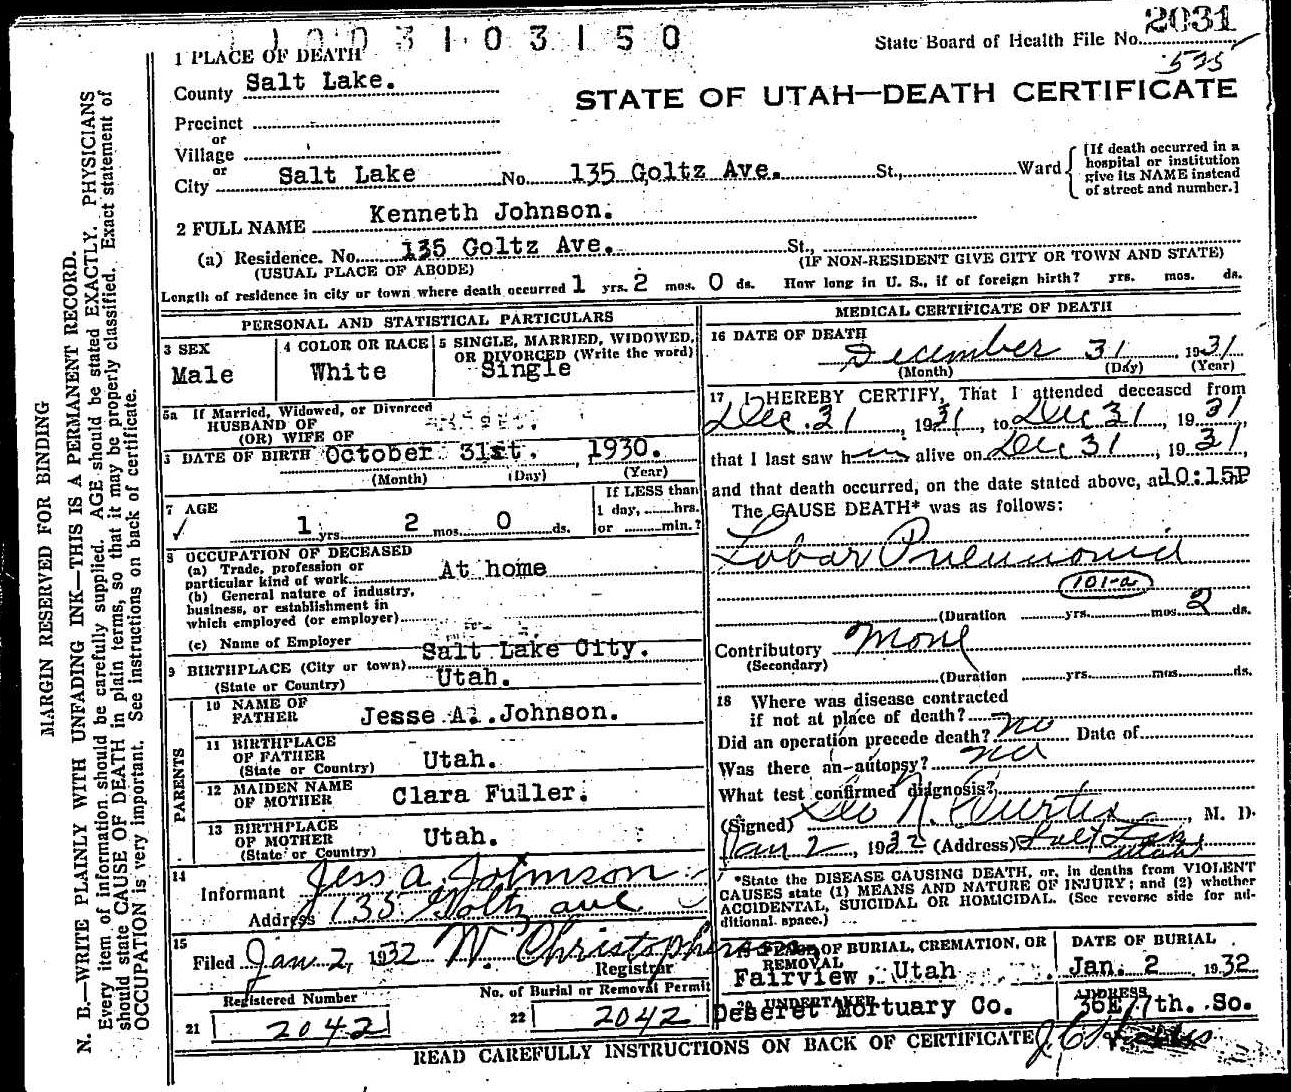 1003103150
2031
State Board of Health File No.
535
1 PLACE OF DEATH
County Salt Lake.
STATE OF UTAH—DEATH CERTIFICATE
Precinct
or
Village
or
City Salt Lake No. 135 Goltz Ave. St., Ward
[If death occurred in a
hospital or institution
give its NAME instead
of street and number.]
2 FULL NAME Kenneth Johnson.
(a) Residence. No. 135 Goltz Ave. St.,
(USUAL PLACE OF ABODE) (IF NON-RESIDENT GIVE CITY OR TOWN AND STATE)
Length of residence in city or town where death occurred 1 yrs. 2 mos. 0 ds. How long in U. S., if of foreign birth? yrs. mos. ds.
PERSONAL AND STATISTICAL PARTICULARS
3 SEX
Male
4 COLOR OR RACE
White
5 SINGLE, MARRIED, WIDOWED,
OR DIVORCED (Write the word)
Single
5a If Married, Widowed, or Divorced
HUSBAND OF
(OR) WIFE OF
DATE OF BIRTH October 31st. , 1930.
(Month) (Day) (Year)
7 AGE
1 yrs. 2 mos. 0 ds.
If LESS than
1 day, hrs.
or min.?
8 OCCUPATION OF DECEASED
(a) Trade, profession or
particular kind of work At home
(b) General nature of industry,
business, or establishment in
which employed (or employer)
(c) Name of Employer
9 BIRTHPLACE (City or town) Salt Lake City.
(State or Country) Utah.
PARENTS
10 NAME OF
FATHER Jesse A. Johnson.
11 BIRTHPLACE
OF FATHER
(State or Country) Utah.
12 MAIDEN NAME
OF MOTHER Clara Fuller.
13 BIRTHPLACE
OF MOTHER
(State or Country) Utah.
14
Informant Jess A. Johnson
Address 135 Goltz ave
15
Filed Jan 2, 1932 W. Christopherson
Registrar
Registered Number
21 2042
No. of Burial or Removal Permit
22 2042
MEDICAL CERTIFICATE OF DEATH
16 DATE OF DEATH
December 31, 1931
(Month) (Day) (Year)
17 I HEREBY CERTIFY, That I attended deceased from
Dec. 31, 1931, to Dec 31, 1931,
that I last saw him alive on Dec 31, 1931,
and that death occurred, on the date stated above, at 10:15P m
The CAUSE DEATH* was as follows:
Lobar Pneumonia
101-a
(Duration yrs. mos. 2 ds.
Contributory None
(Secondary)
(Duration yrs. mos. ds.
18 Where was disease contracted
if not at place of death?
Did an operation precede death? no Date of
Was there an autopsy? no
What test confirmed diagnosis?
(Signed) Geo N. Curtis, M. D.
Jan 2, 1932 (Address) Salt Lake
Utah
*State the DISEASE CAUSING DEATH, or, in deaths from VIOLENT
CAUSES state (1) MEANS AND NATURE OF INJURY; and (2) whether
ACCIDENTAL, SUICIDAL OR HOMICIDAL. (See reverse side for ad-
ditional space.)
OF BURIAL, CREMATION, OR
REMOVAL
Fairview, Utah
DATE OF BURIAL
Jan. 2 1932
20 UNDERTAKER
Deseret Mortuary Co.
ADDRESS
36 E 7th. So.
READ CAREFULLY INSTRUCTIONS ON BACK OF CERTIFICATE
MARGIN RESERVED FOR BINDING
N. B.—WRITE PLAINLY WITH UNFADING INK—THIS IS A PERMANENT RECORD.
Every item of information should be carefully supplied. AGE should be stated EXACTLY. PHYSICIANS
should state CAUSE OF DEATH in plain terms, so that it may be properly classified. Exact statement of
OCCUPATION is very important. See instructions on back of certificate.